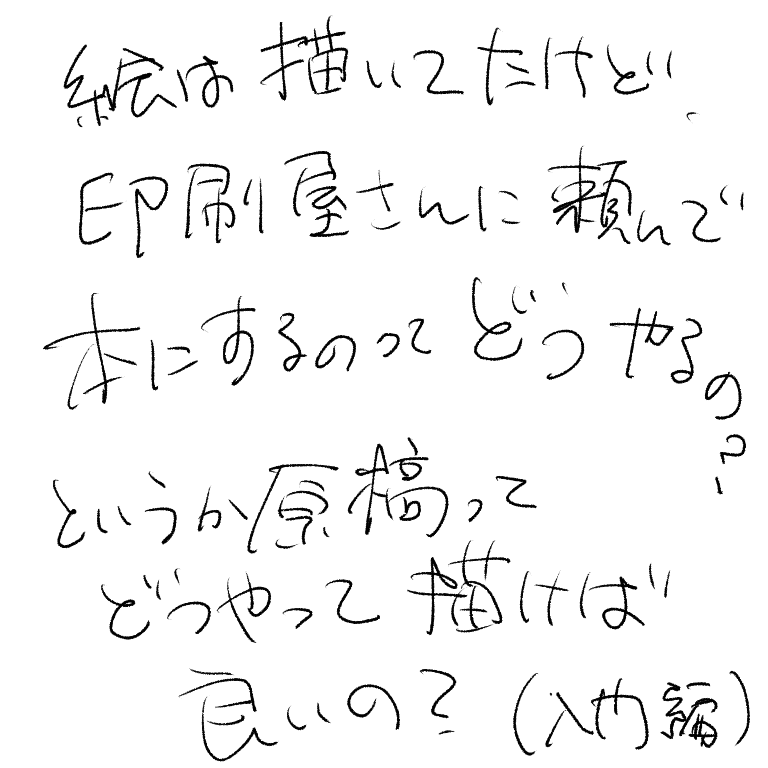 絵は描いてたけど、
印刷屋さんに頼んで
本にするのってどうやるの?
というか原稿って
どうやって描けば
良いの?(入門編)